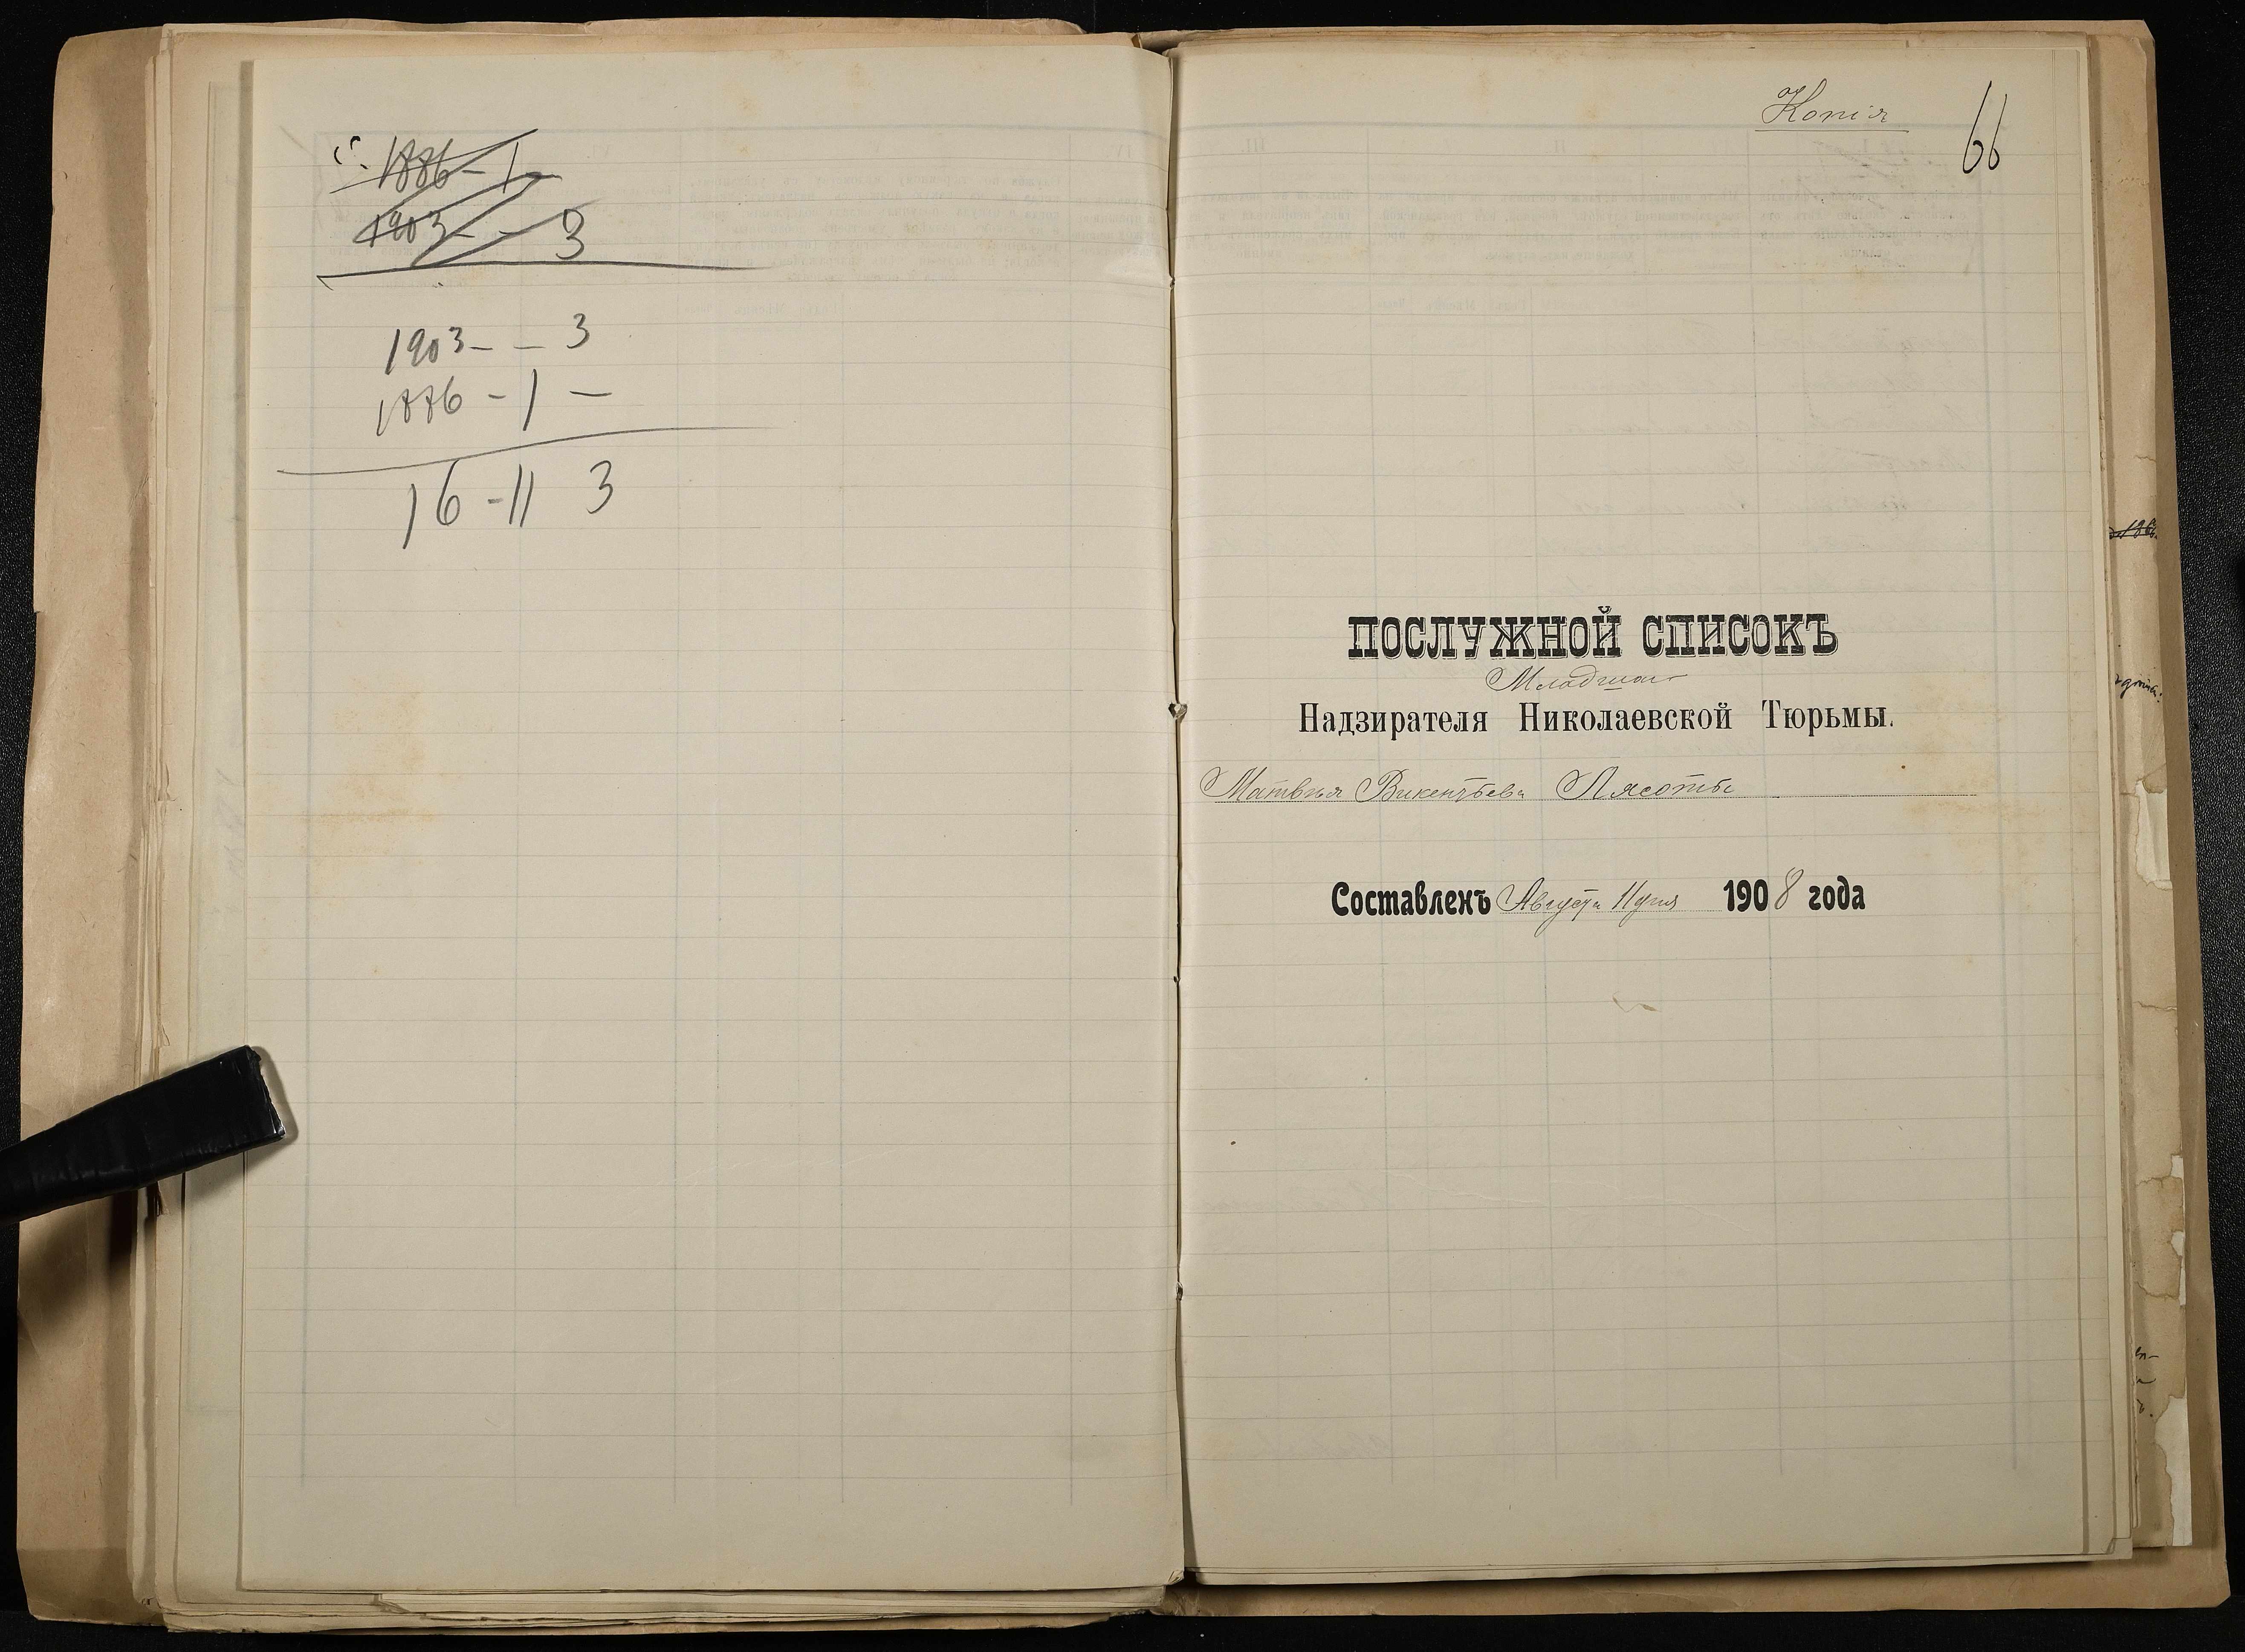 1886 - 1
1903 - - 3
1903 - - 3
1886 - 1 -
16 - 11 3
Копія
66
ПОСЛУЖНОЙ СПИСОКЪ
Младшаго
Надзирателя Николаевской Тюрьмы.
Матвѣя Викентьева Лясоты
Составленъ Августа 11 дня 1908 года